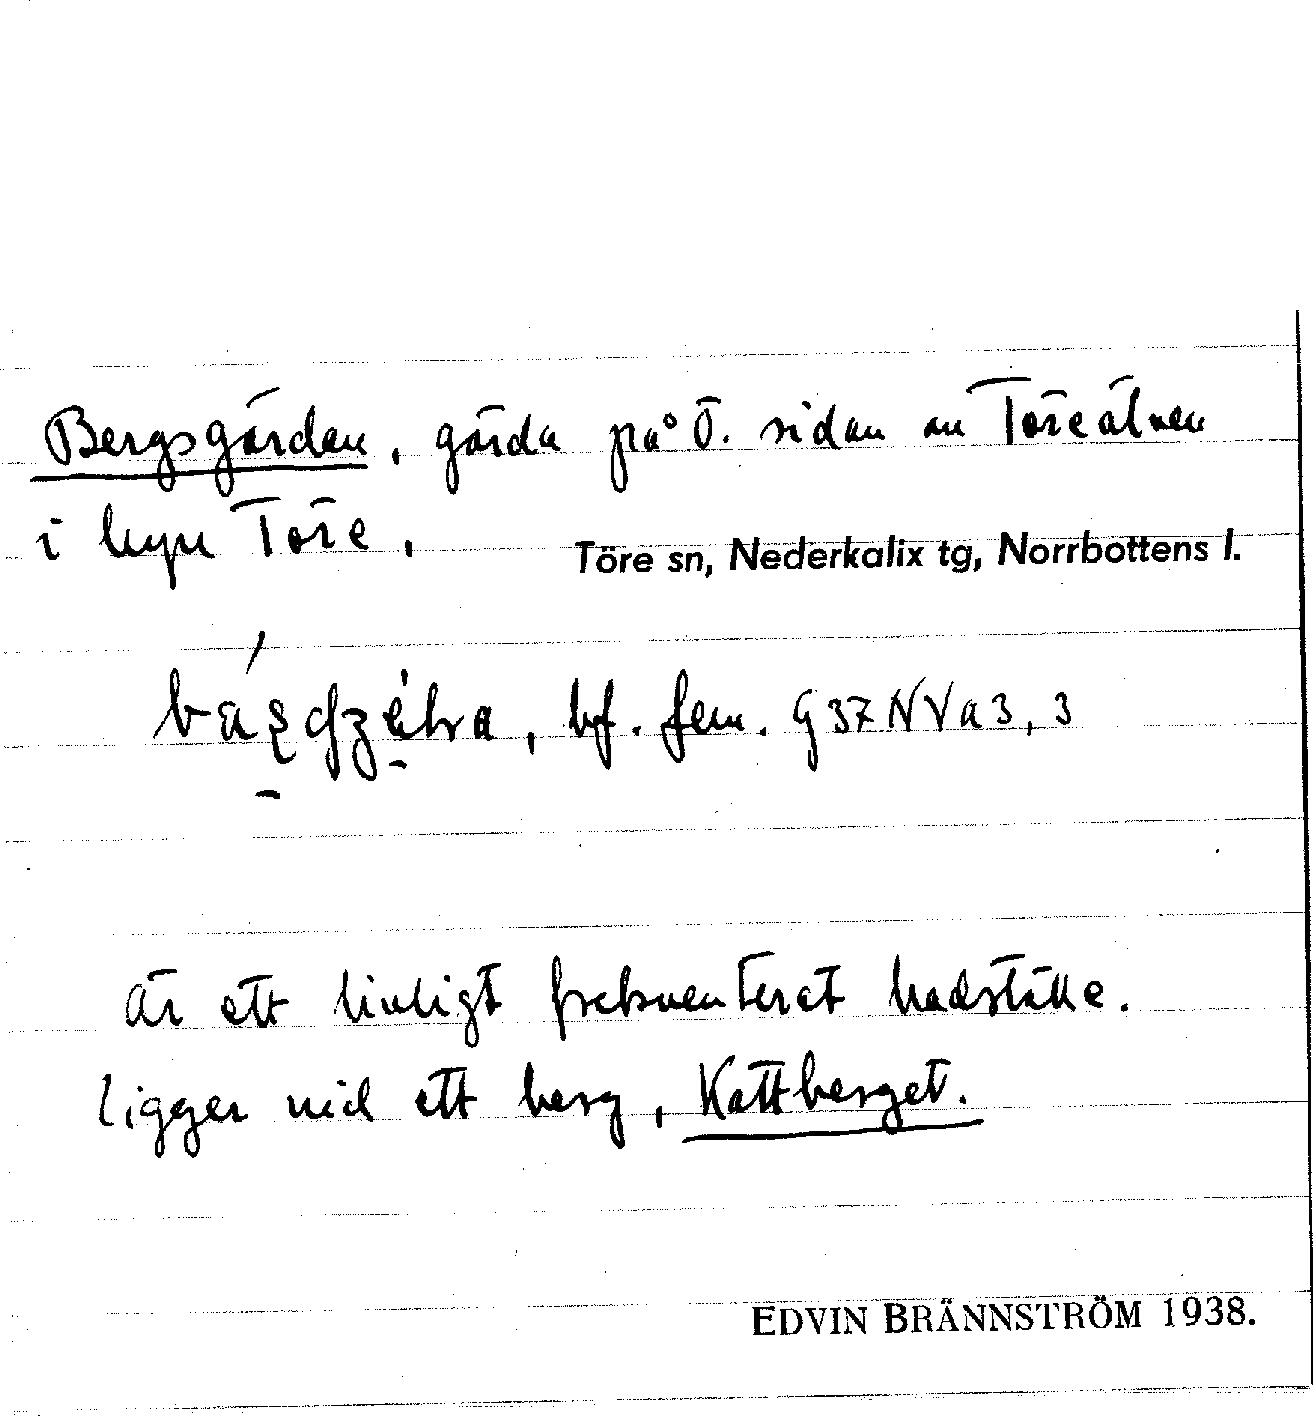 Bergsgärdan, gärda på Ö. sidan av Töreälven
i byn Töre.
Töre sn, Nederkalix tg, Norrbottens l.
bf. fem. G37NVa3, 3
är ett livligt frekventerat badställe.
Ligger vid ett berg, Kattberget.
EDVIN BRÄNNSTRÖM 1938.